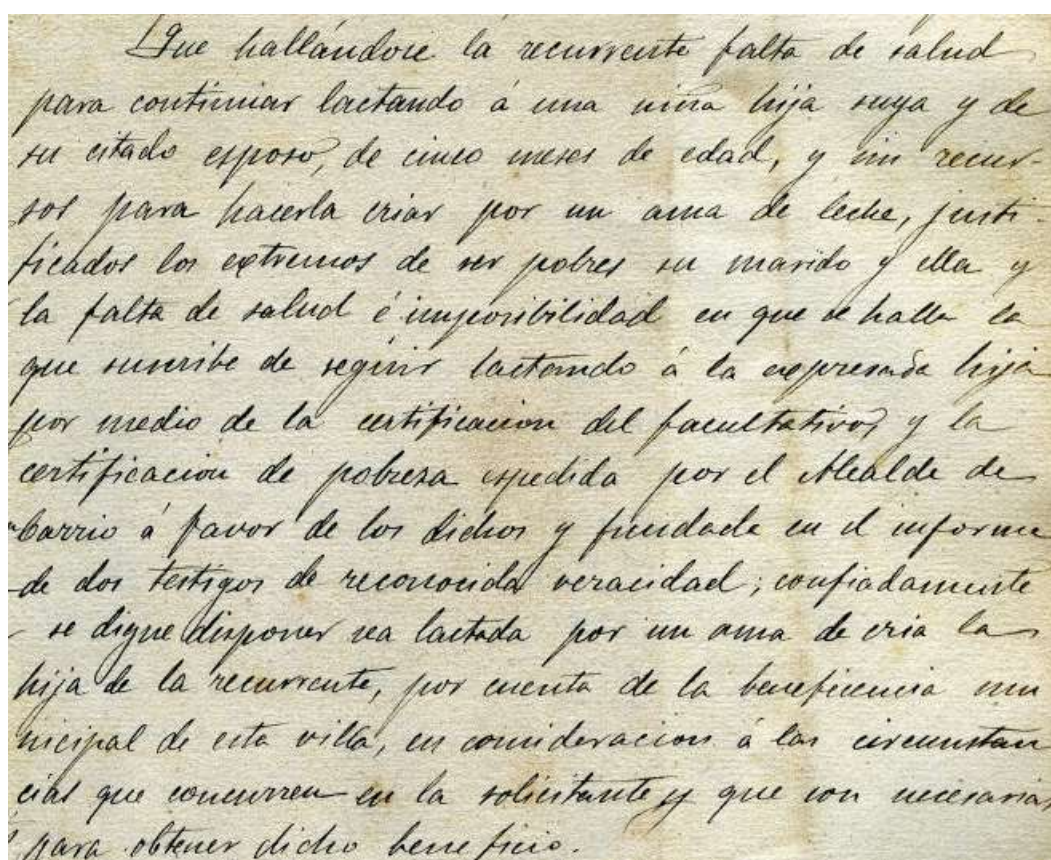 Que hallándose la recurrente falta de salud
para continuar lactando á una niña hija suya y de
su citado esposo, de cinco meses de edad, y sin recur-
sos para hacerla criar por un ama de leche, justi-
ficados los extremos de ser pobres su marido y ella y
la falta de salud é imposibilidad en que se halla la
que suscribe de seguir lactando á la expresada hija
por medio de la certificacion del facultativo, y la
certificacion de pobreza espedida por el Alcalde de
barrio á favor de los dichos y fundada en el informe
de dos testigos de reconocida veracidad; confiadamente
se digne disponer sea lactada por un ama de cria la
hija de la recurrente, por cuenta de la beneficencia mu
nicipal de esta villa, en consideracion á las circunstan
cias que concurren en la solicitante y que son necesarias
para obtener dicho beneficio.